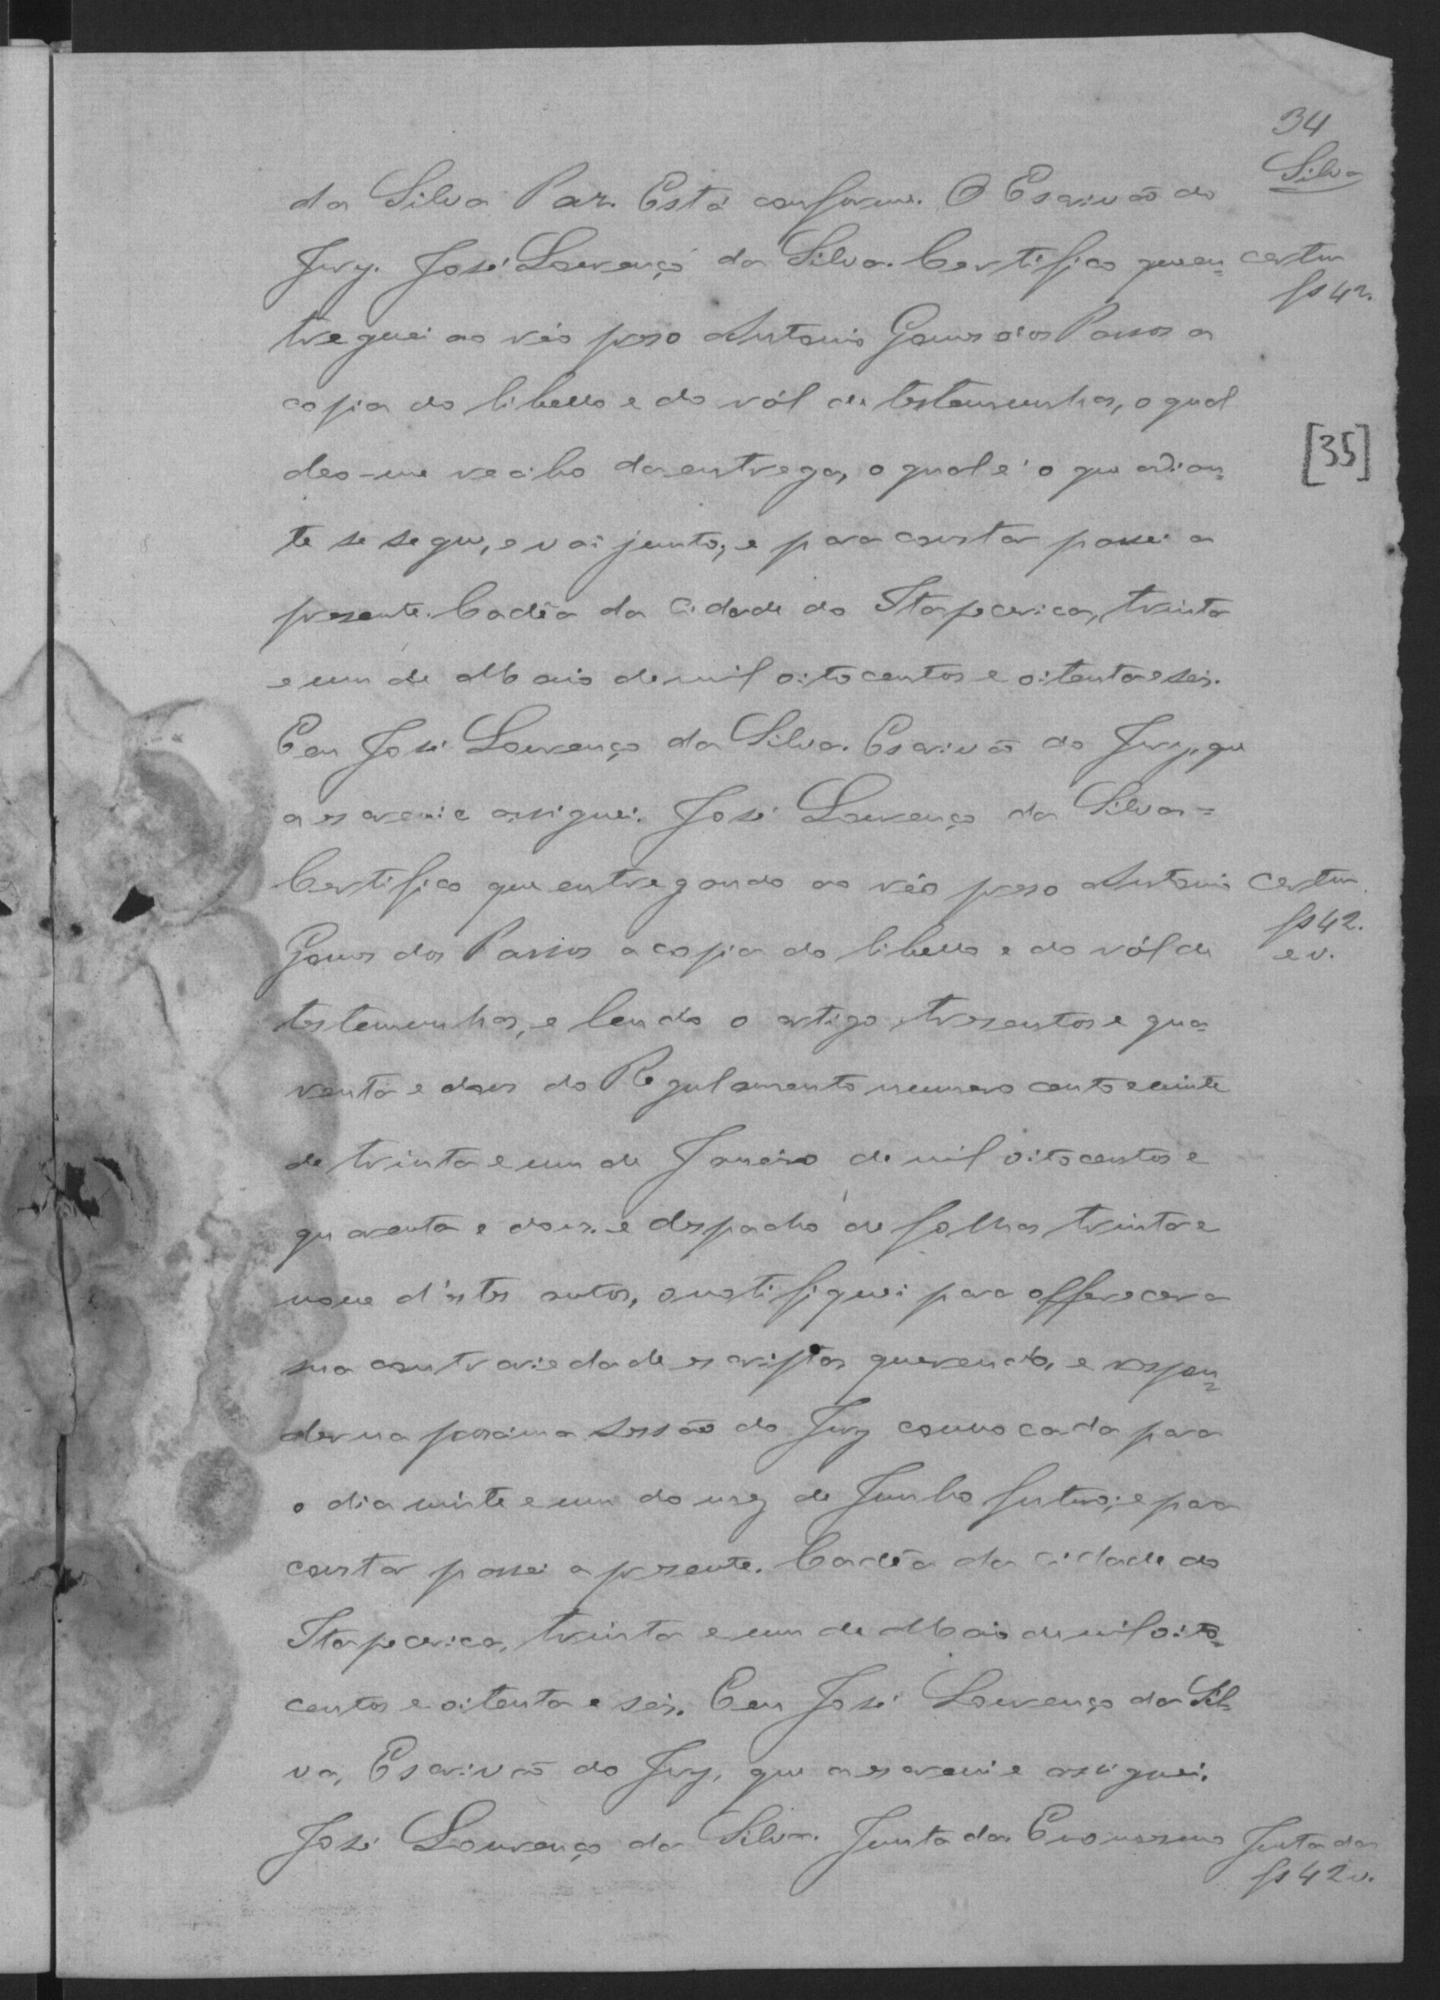 34
Silva
da Silva Paz. Está conforme. O Escrivão do
Jury. José Lourenço da Silva. Certifico que en-
certm
fs 42.
treguei ao réo preso Antonio Gomes dos Passos a
copia do libello e do ról de testemunhas, o qual
deo-me recibo da entrega, o qual é o que adian-
[35]
te se segue, e vai junto; e para constar passei a
presente. Cadêa da Cidade do Itapecerica, trinta
e um de Maio de mil oitocentos e oitenta e seis.
Eeu José Lourenço da Silva. Escrivão do Jury, que
a escrevi e assignei. José Lourenço da Silva =
Certifico que entregando ao réo preso Antonio
certm.
fs 42.
e v.
Gomes dos Passos a copia do libello e do ról de
testemunhas, e lendo o artigo tresentos e qua-
renta e dous do Regulamento numero cento e vinte
de trinta e um de Janeiro de mil oitocentos e
quarenta e dous. e despacho de folhas trinta e
nove d'estes autos, o notifiquei para offerecer a
sua contrariedade escripta querendo, e respon-
der na proxima sessão do Jury convocada para
o dia vinte e um do mez de Junho futuro; e para
constar passei a presente. Cadêa da cidade do
Itapecerica, trinta e um de Maio de mil oito-
centos e oitenta e seis. Eeu José Lourenço da Sil-
va, Escrivão do Jury, que a escrevi e assignei.
José Lourenço da Silva. Juntada. E no mesmo
Juntada
fs 42 v.